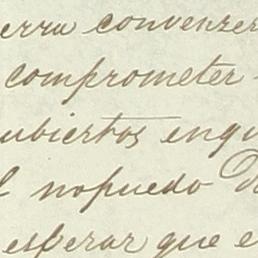 erra convenzer
comprometer
ubiertos enqu
l nopuedo De
esperar que e